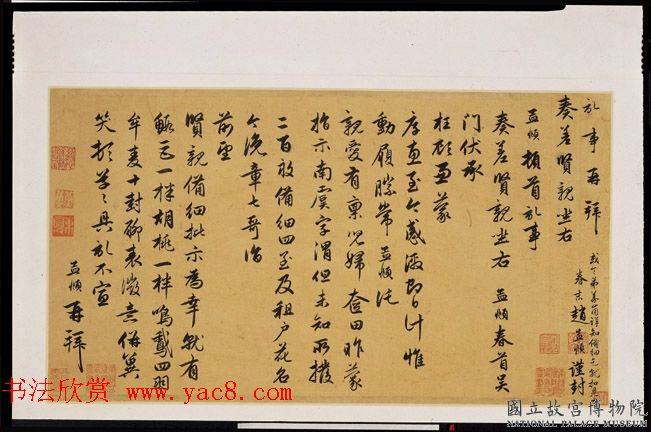 記事再拜
奏差賢親坐右
眷末趙孟頫謹封
孟頫頓首記事
奏差賢親坐右 孟頫春首吳
門伏承
枉顧重蒙
厚惠至今感激即日計惟
動履勝常孟頫託
親愛有稟兒婦奩田昨蒙
指示南虞字渭但未知所撥
二百畝備細四至及租户花名
今浼章七哥詣
前望
賢親備細批示為幸就有
一样胡桃一样四羽
十對聊表微意併冀
笑頓草草具記不宣
孟頫再拜
书法欣赏 www.yac8.com
國立故宮博物院
NATIONAL PALACE MUSEUM